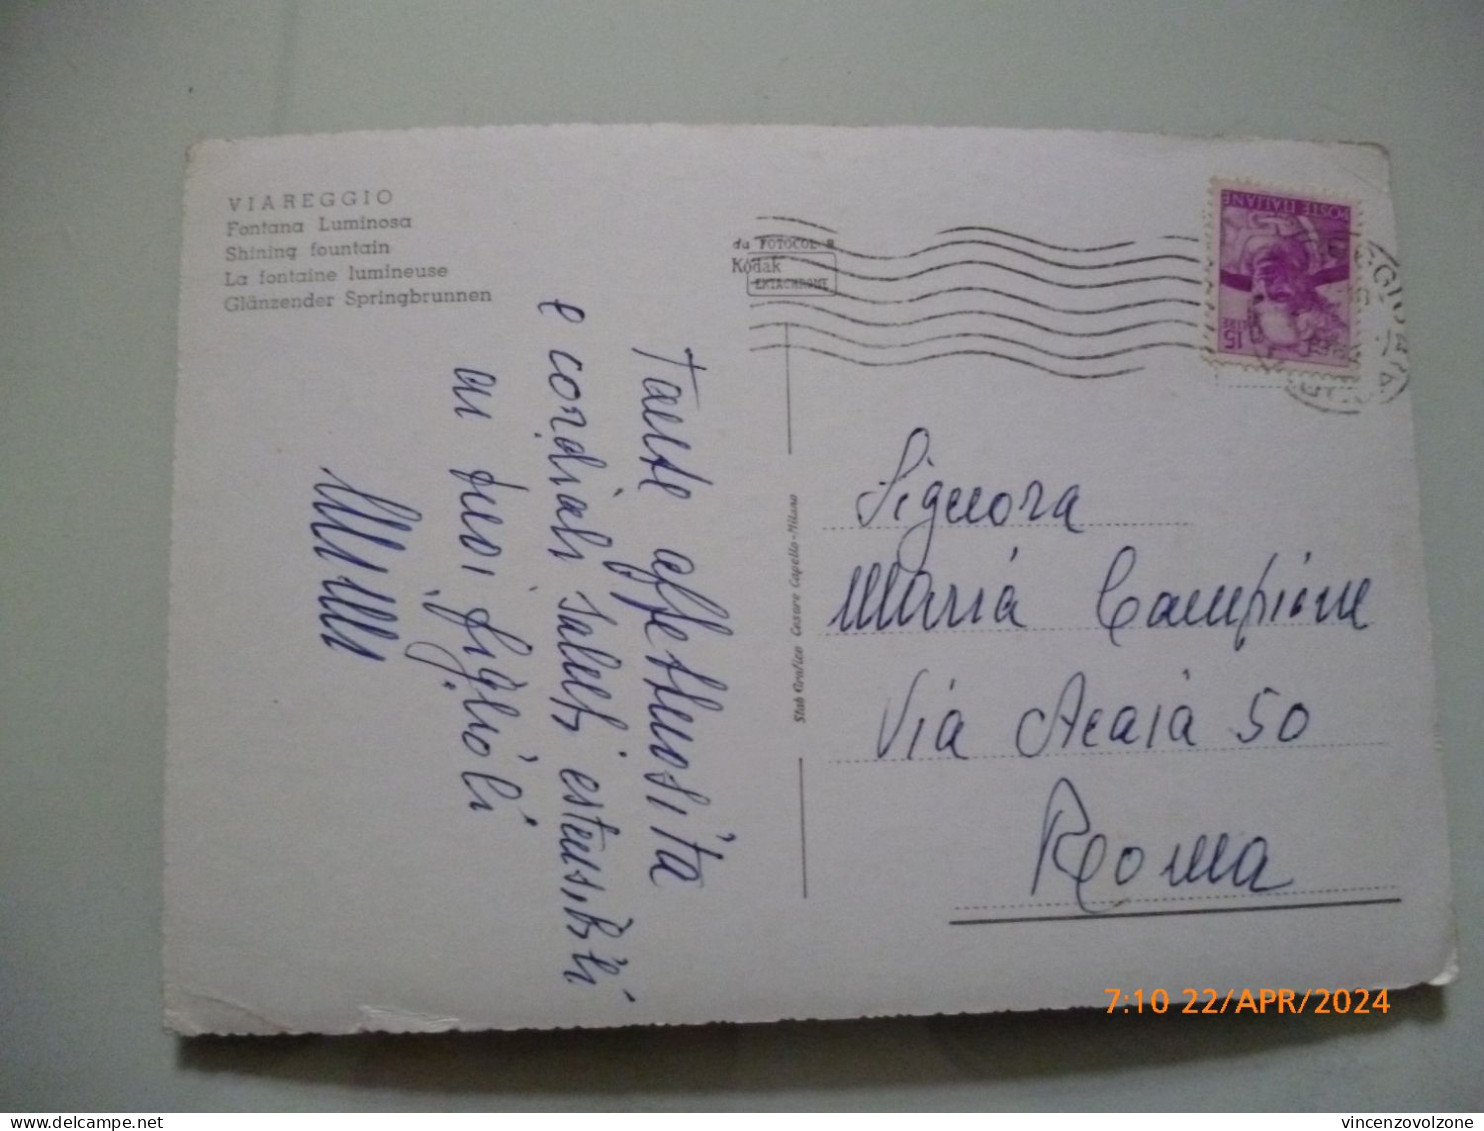 VIAREGGIO
Fontana Luminosa
Shining fountain
La fontaine lumineuse
Glänzender Springbrunnen
da FOTOCOLOR
Kodak
EKTACHROME
POSTE ITALIANE
LIRE 15
Tante affettuosità
e cordiali saluti estensibili
ai tuoi figlioli
Stab Grafico Cesare Capello-Milano
Signora
Maria Campione
Via Acaia 50
Roma
7:10 22/APR/2024
delcampe.net
vincenzovolzone